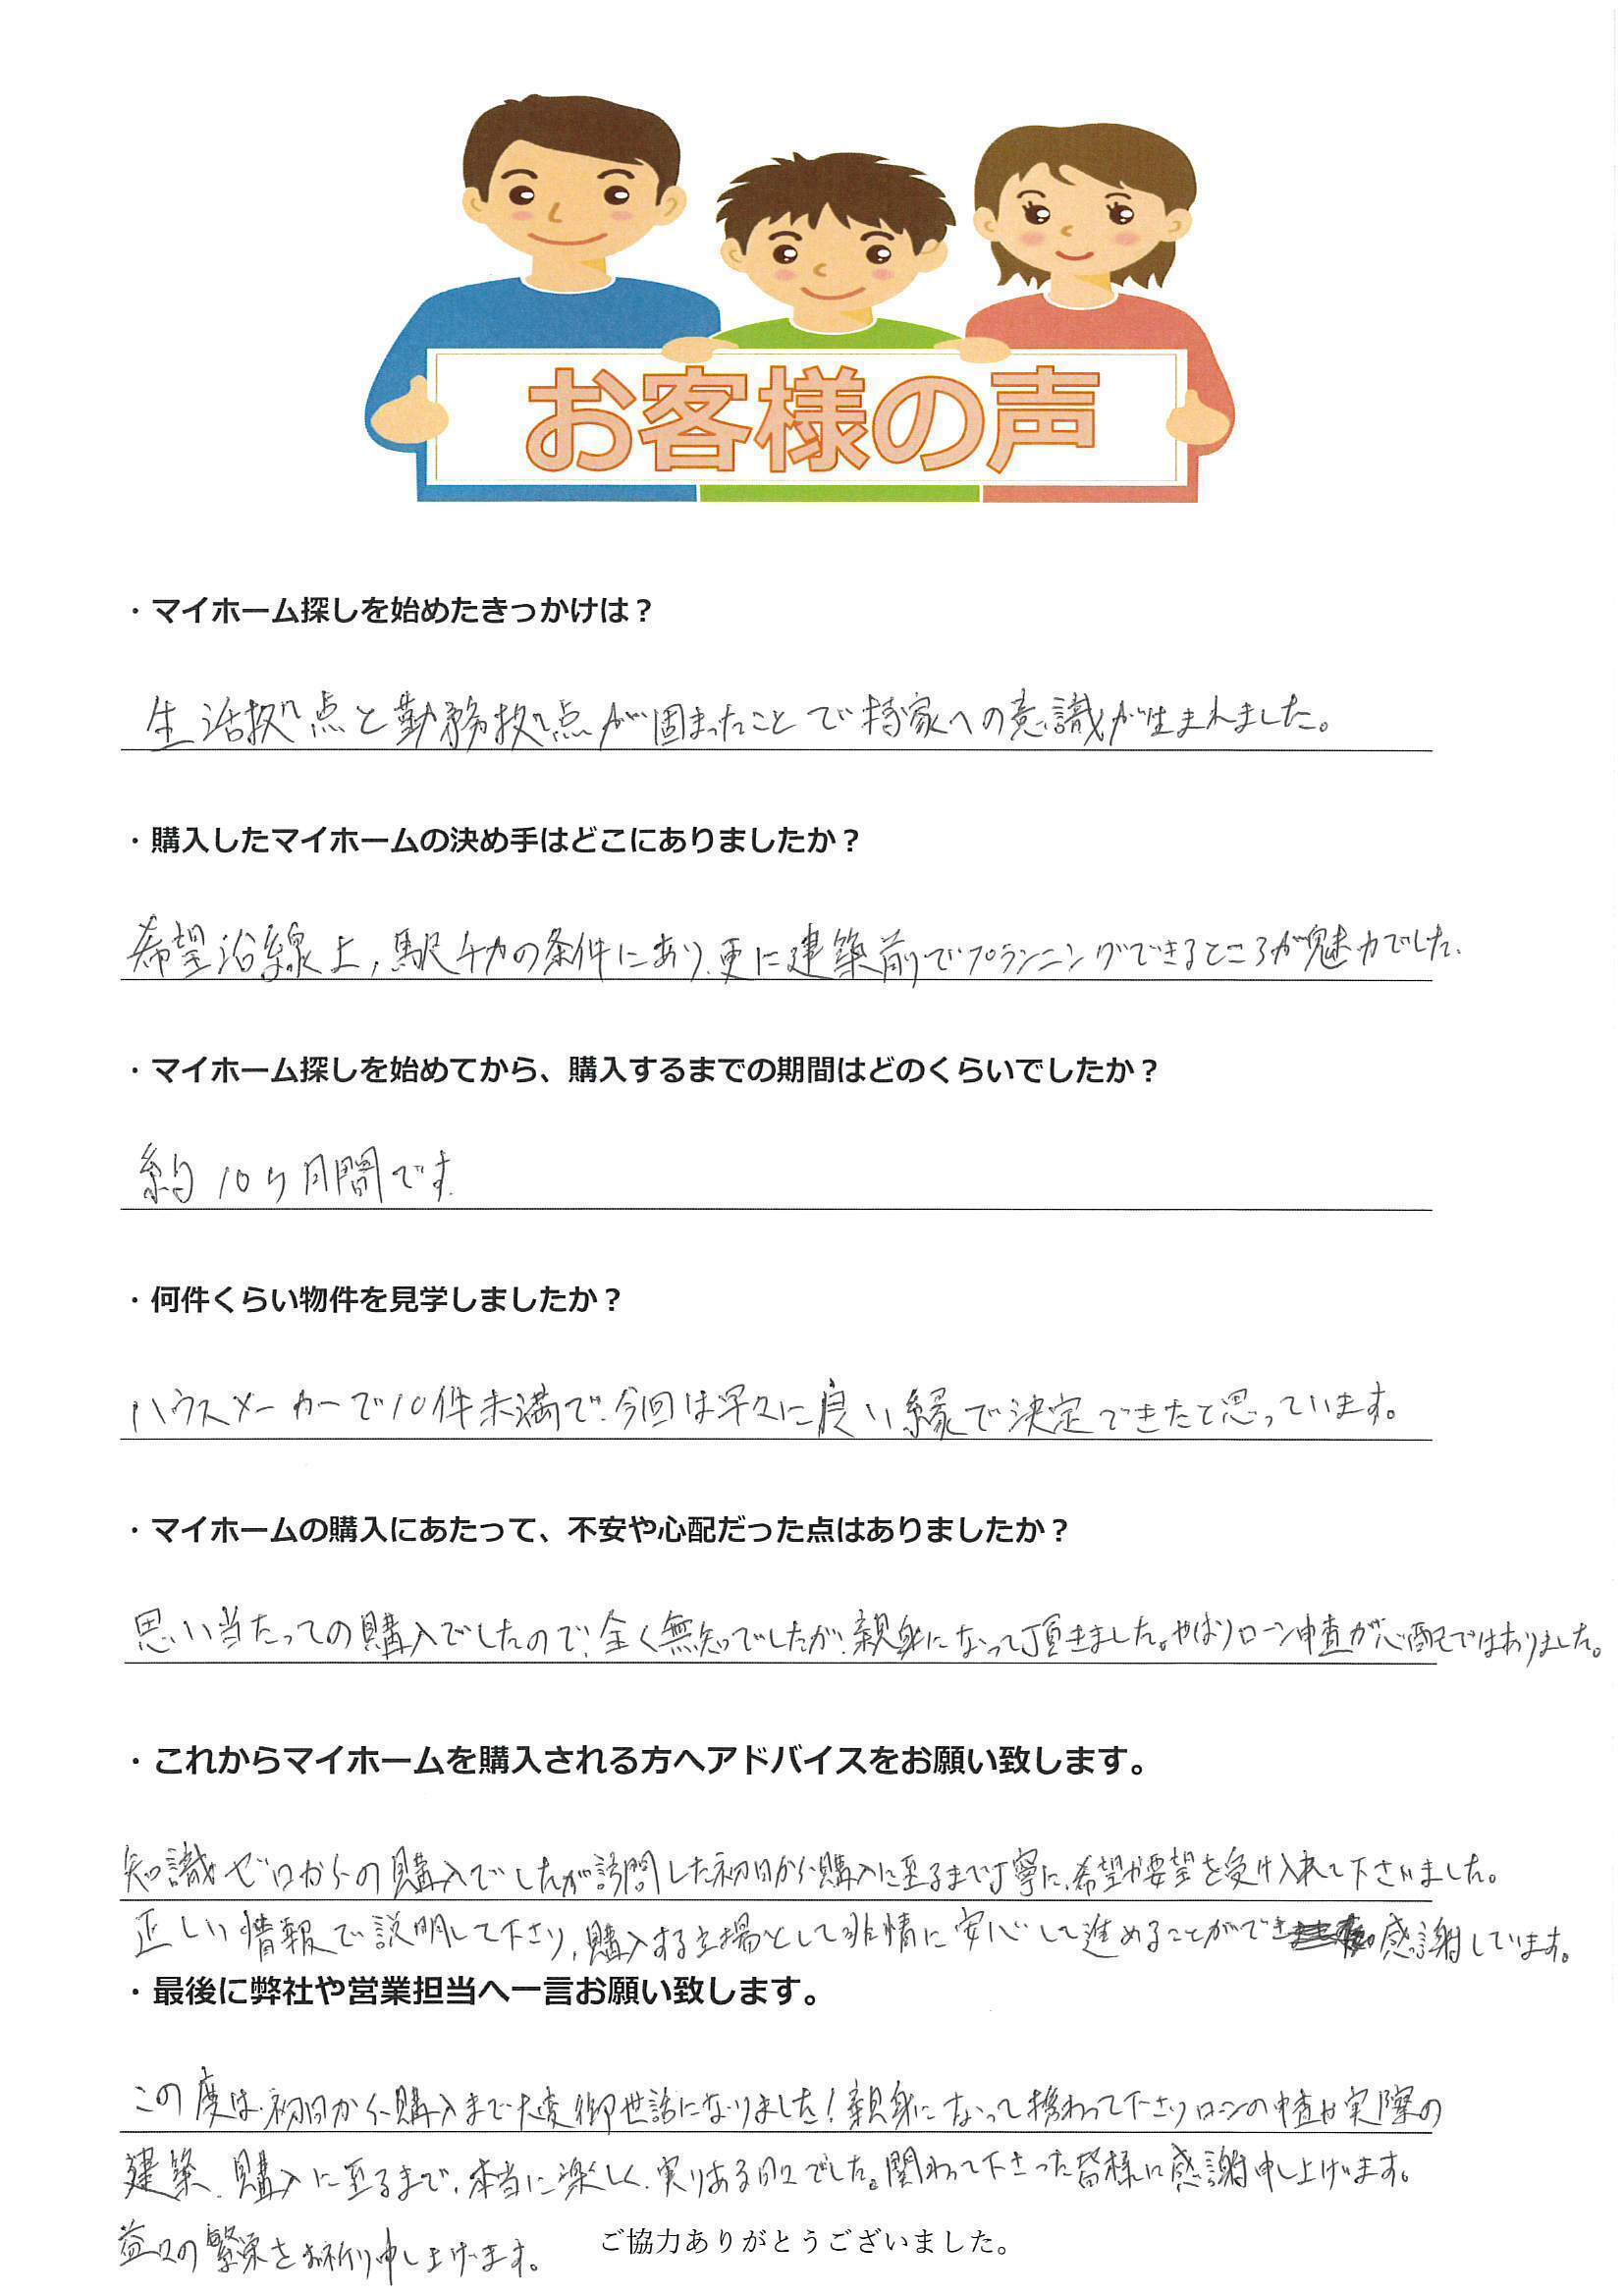 お客様の声
・マイホーム探しを始めたきっかけは？
生活拠点と勤務拠点が固まったことで持家への意識が生まれました。
・購入したマイホームの決め手はどこにありましたか？
希望沿線上、駅チカの条件にあり、更に建築前でプランニングできるところが魅力でした.
・マイホーム探しを始めてから、購入するまでの期間はどのくらいでしたか？
約10ヶ月間です.
・何件くらい物件を見学しましたか？
ハウスメーカーで10件未満で、今回は早々に良い縁で決定できたと思っています。
・マイホームの購入にあたって、不安や心配だった点はありましたか？
思い当たっての購入でしたので、全く無知でしたが、親身になって頂きました。やはりローン審査が心配ではありました。
・これからマイホームを購入される方へアドバイスをお願い致します。
知識ゼロからの購入でしたが訪問した初日から購入に至るまで丁寧に、希望や要望を受け入れて下さいました。
正しい情報で説明して下さり、購入する立場として非情に安心して進めることができ感謝しています。
・最後に弊社や営業担当へ一言お願い致します。
この度は、初日から購入まで大変御世話になりました！親身になって携わって下さりローンの審査や実際の
建築、購入に至るまで、本当に楽しく、実りある日々でした。関わって下さった皆様に感謝申し上げます。
益々の繁栄をお祈り申し上げます。
ご協力ありがとうございました。